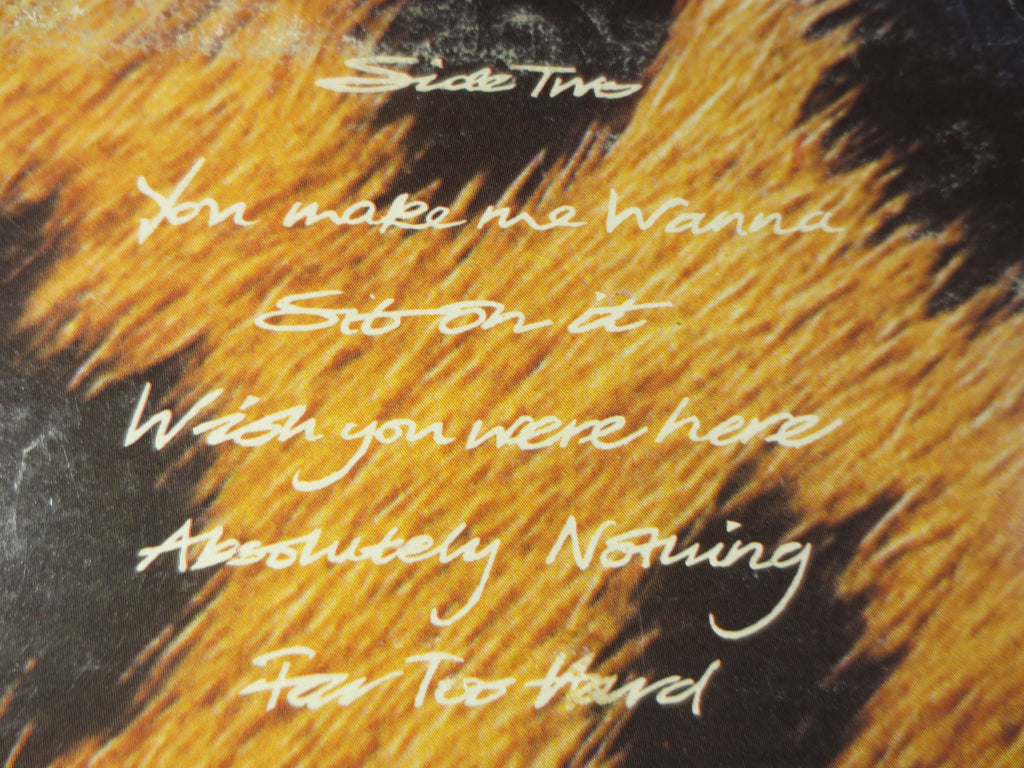 Side Two
You make me Wanna
Sit on it
Wish you were here
Absolutely Nothing
Far Too Hard